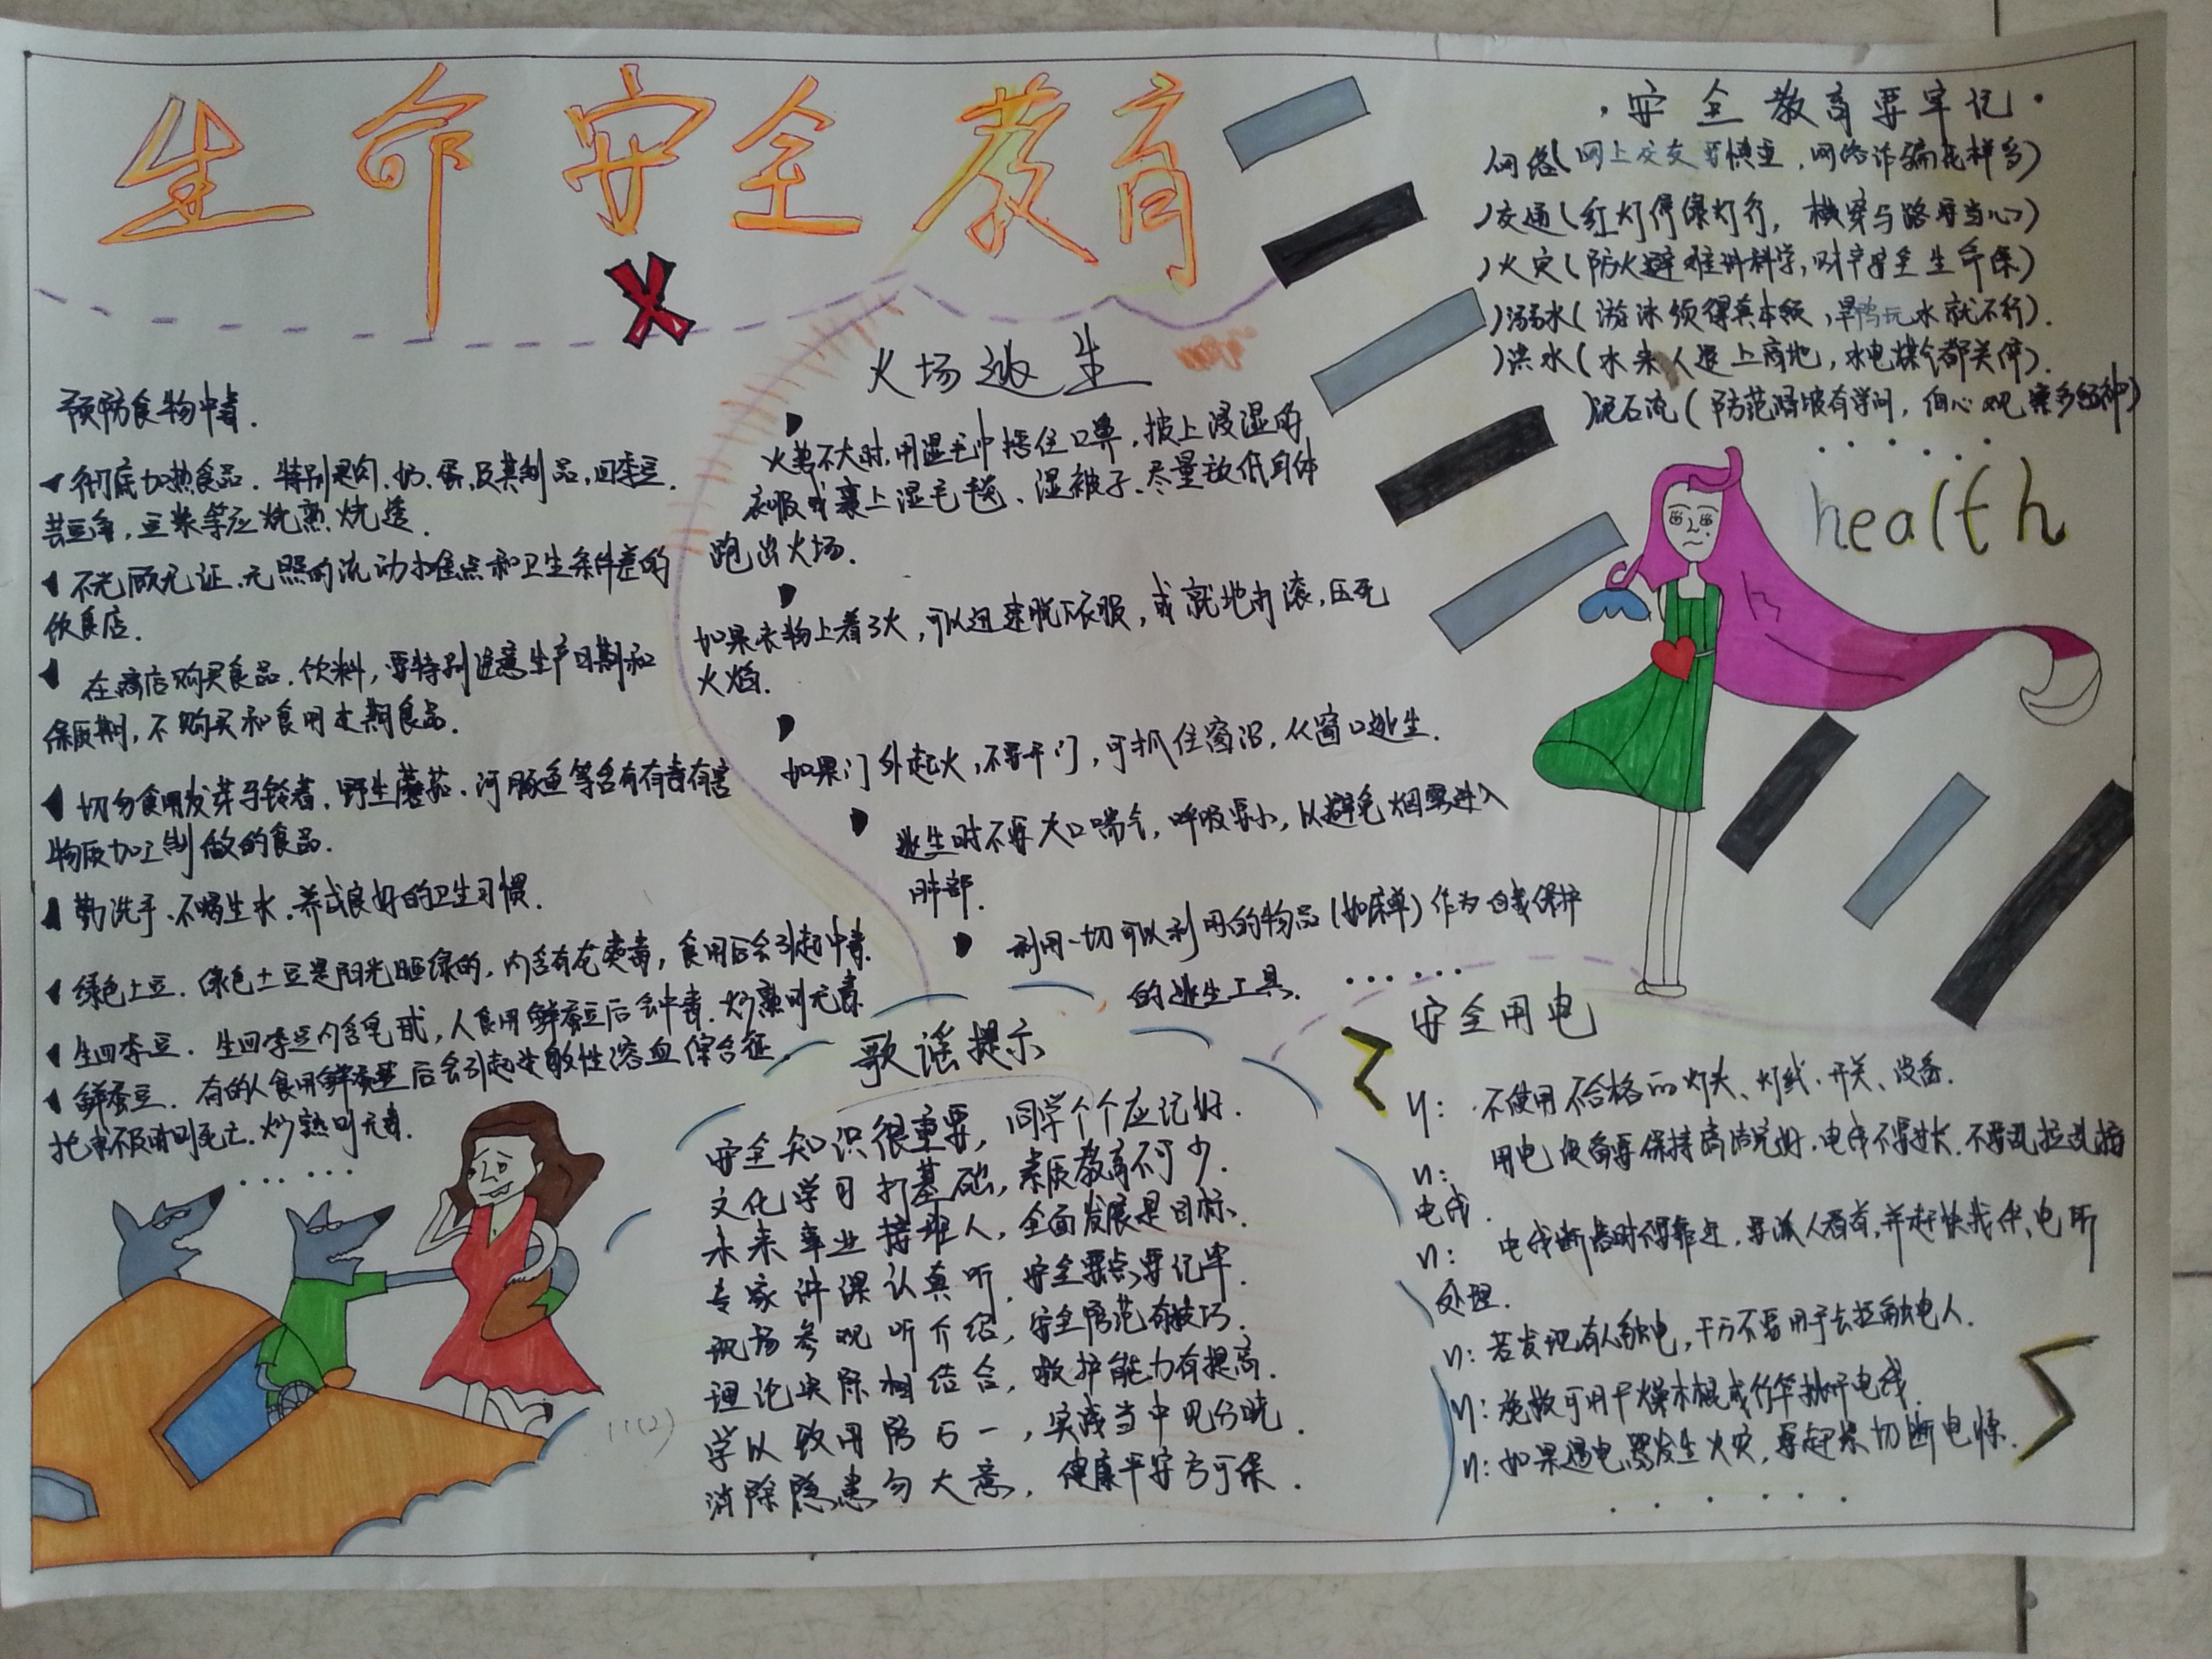 生命安全教育
·安全教育要牢记·
网络(网上交友要慎重,网络诈骗花样多)
交通(红灯停绿灯行,横穿马路要当心)
火灾(防火避难讲科学,财产安全生命保)
溺水(游泳须得真本领,旱鸭玩水就不行).
洪水(水来人退上高地,水电煤气都关停).
泥石流(防范滑坡有学问,细心观察多留神)
······
health
预防食物中毒.
彻底加热食品.特别是肉.奶.蛋,及其制品,四季豆.
芸豆角,豆浆等应烧熟烧透.
不光顾无证.无照的流动摊点和卫生条件差的
饮食店.
在商店购买食品.饮料,要特别注意生产日期和
保质期,不购买和食用过期食品.
切勿食用发芽马铃薯.野生蘑菇.河豚鱼等含有有毒有害
物质加工制做的食品.
勤洗手.不喝生水.养成良好的卫生习惯.
绿色土豆.绿色土豆是阳光晒绿的,内含有龙葵毒,食用后会引起中毒.
生四季豆.生四季豆内含皂甙,人食用鲜蚕豆后会中毒.炒熟则无毒
鲜蚕豆.有的人食用鲜蚕豆后会引起过敏性溶血综合征.
抢救不及时则死亡.炒熟则无毒.
······
火场逃生
火势不大时,用湿毛巾捂住口鼻,披上浸湿的
衣服或裹上湿毛毯、湿被子.尽量放低身体
跑出火场.
如果衣物上着了火,可以迅速脱下衣服,或就地打滚,压死
火焰.
如果门外起火,不要开门,可抓住窗沿,从窗口逃生.
逃生时不要大口喘气,呼吸要小,以避免烟雾进入
肺部.
利用一切可以利用的物品(如床单)作为自我保护
的逃生工具.······
歌谣提示
安全知识很重要,同学个个应记好.
文化学习打基础,素质教育不可少.
未来事业接班人,全面发展是目标.
专家讲课认真听,安全要点要记牢.
现场参观听介绍,安全防范有技巧.
理论实际相结合,救护能力有提高.
学以致用防万一,实践当中见分晓.
消除隐患勿大意,健康平安方可保.
安全用电
不使用不合格的灯头、灯线、开关、设备.
用电设备要保持清洁完好.电线不要过长.不要乱拉乱接
电线.
电线断落时不要靠近,要派人看着,并赶快找人、电所
处理.
若发现有人触电,千万不要用手去拉触电人.
抢救可用干燥木棍或竹竿挑开电线.
如果遇电器发生火灾,要赶紧切断电源.
······